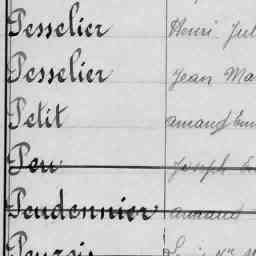 Pesselier Henri Jul
Pesselier Jean Ma
Petit Amand Em
Peu Joseph
Peudennier Armand